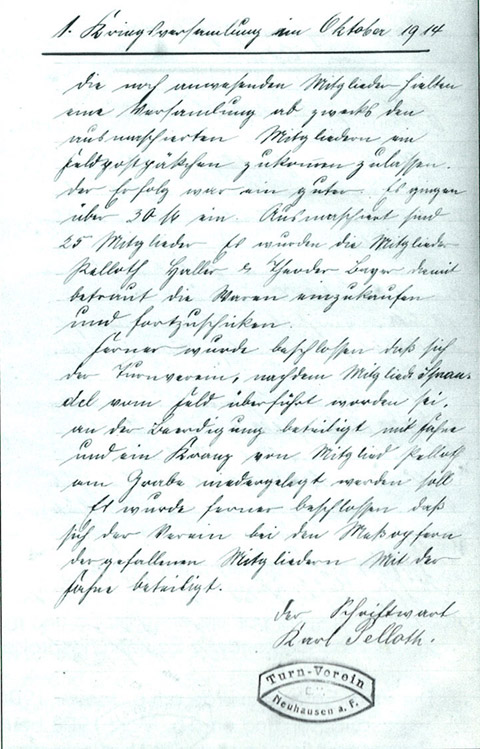 1. Kriegsversamlung im Oktober 1914
die noch anwesenden Mitglieder hielten
eine Versamlung ab zwecks den
ausmarschierten Mitgliedern ein
Feldpostpäkchen zukommen zulassen.
der Erfolg war ein guter. Es gingen
über 30 M ein. Ausmarschiert sind
25 Mitglieder Es wurden die Mitglieder
Pelloth Haller & Theoder Bayer damit
betraut die Waren einzukaufen
und fortzuschicken.
Ferner wurde beschlossen daß sich
der Turnverein, nachdem Mitglied
vom Feld überführt worden sei,
an der Beerdigung beteiligt mit Fahne
und ein Kranz von Mitglied Pelloth
am Grabe niedergelegt werden soll
Es wurde ferner beschlossen daß
sich der Verein bei den Meßopfern
der gefallenen Mitgliedern Mit der
Fahne beteiligt.
der Schriftwart
Karl Pelloth.
Turn-Verein
Neuhausen a. F.